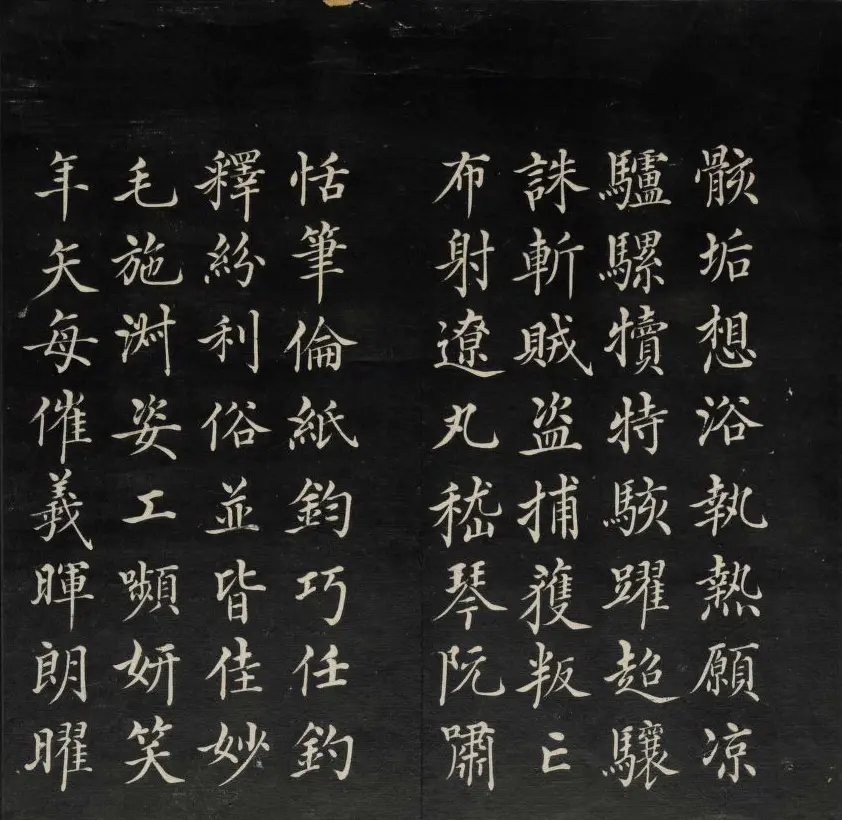 骸垢想浴執熱願凉
驢騾犢特駭躍超驤
誅斬賊盗捕獲叛亡
布射遼丸嵇琴阮嘯
恬筆倫紙鈞巧任釣
釋紛利俗並皆佳妙
毛施淵姿工嚬妍笑
年矢每催羲暉朗曜